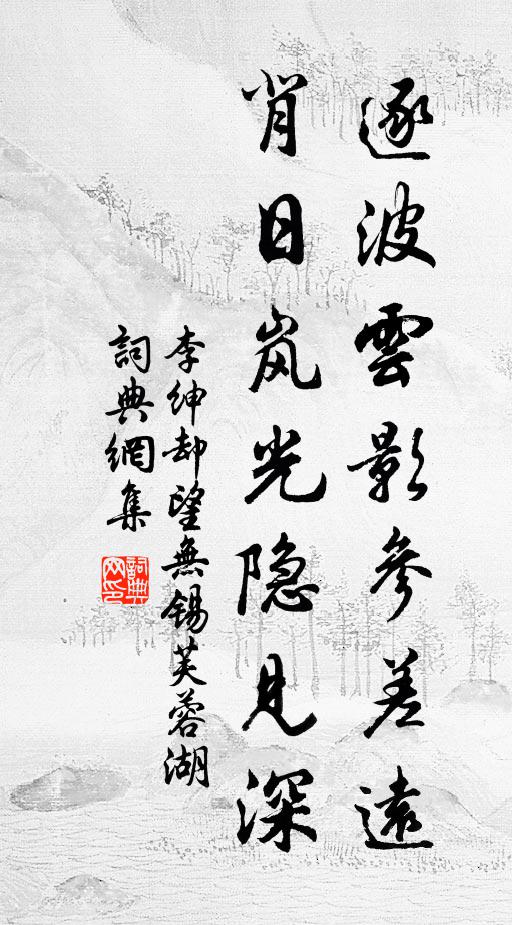 逐波雲影參差遠
背日岚光隐見深
李紳却望無錫芙蓉湖
詞典網集
詞典网印